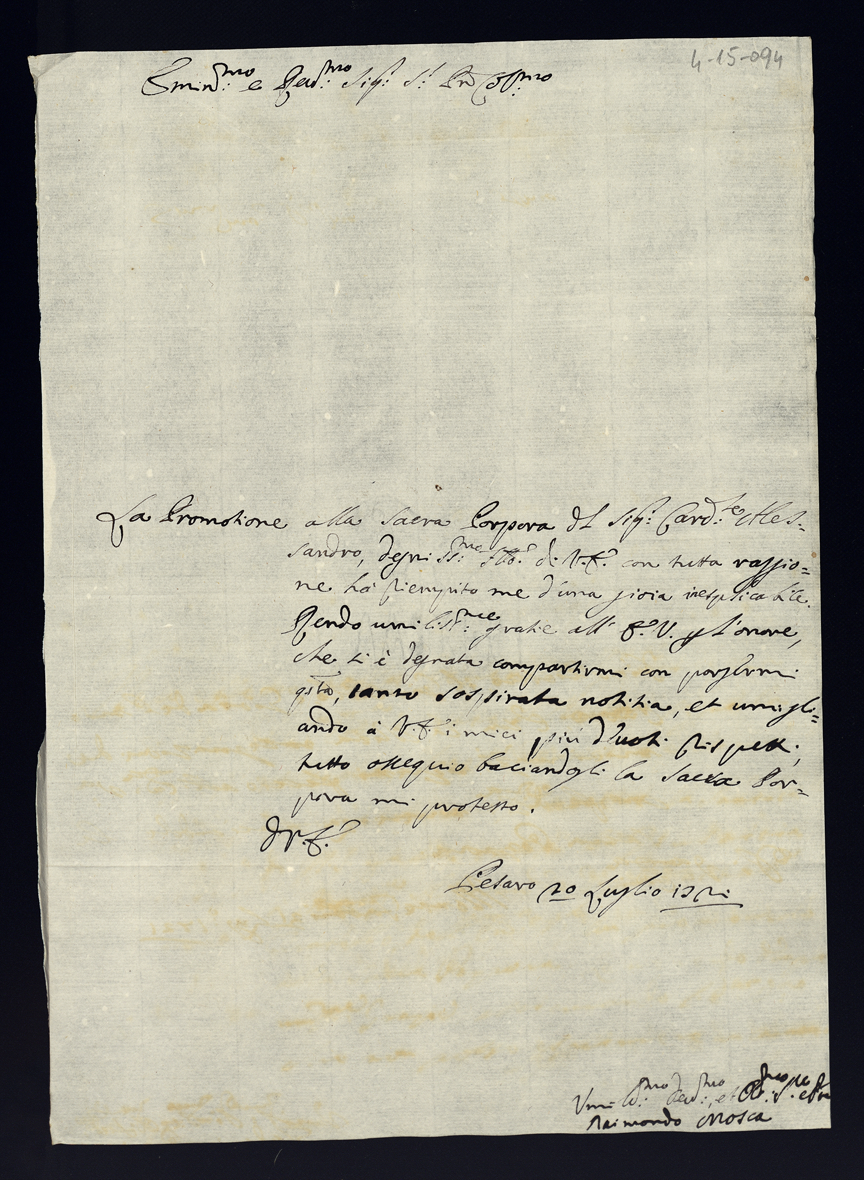 4-15-094
Emin:mo e Rev:mo Sig:r S:r Prõn Col:mo
La Promotione alla Sacra Porpora dl Sig:r Card:le Ales-
sandro, degniss:mo f̃tto: di V.E. con tutta raggio=
ne hà riempito me d'una gioia inesplicabile.
Rendo umiliss:me gratie all' E.V. p l'onore,
che si è degnata compartirmi con porgermi
qsta, tanto sospirata notitia, et umigli=
ando à V.E. i miei più d'uoti rispetti,
tutto ossequio baciandogli la Sacra Por=
pora mi protesto.
D V.E.
Pesaro 20 Luglio 1721
Umil:mo Dev:mo, et Obl:mo S:re
Raimondo Mosca